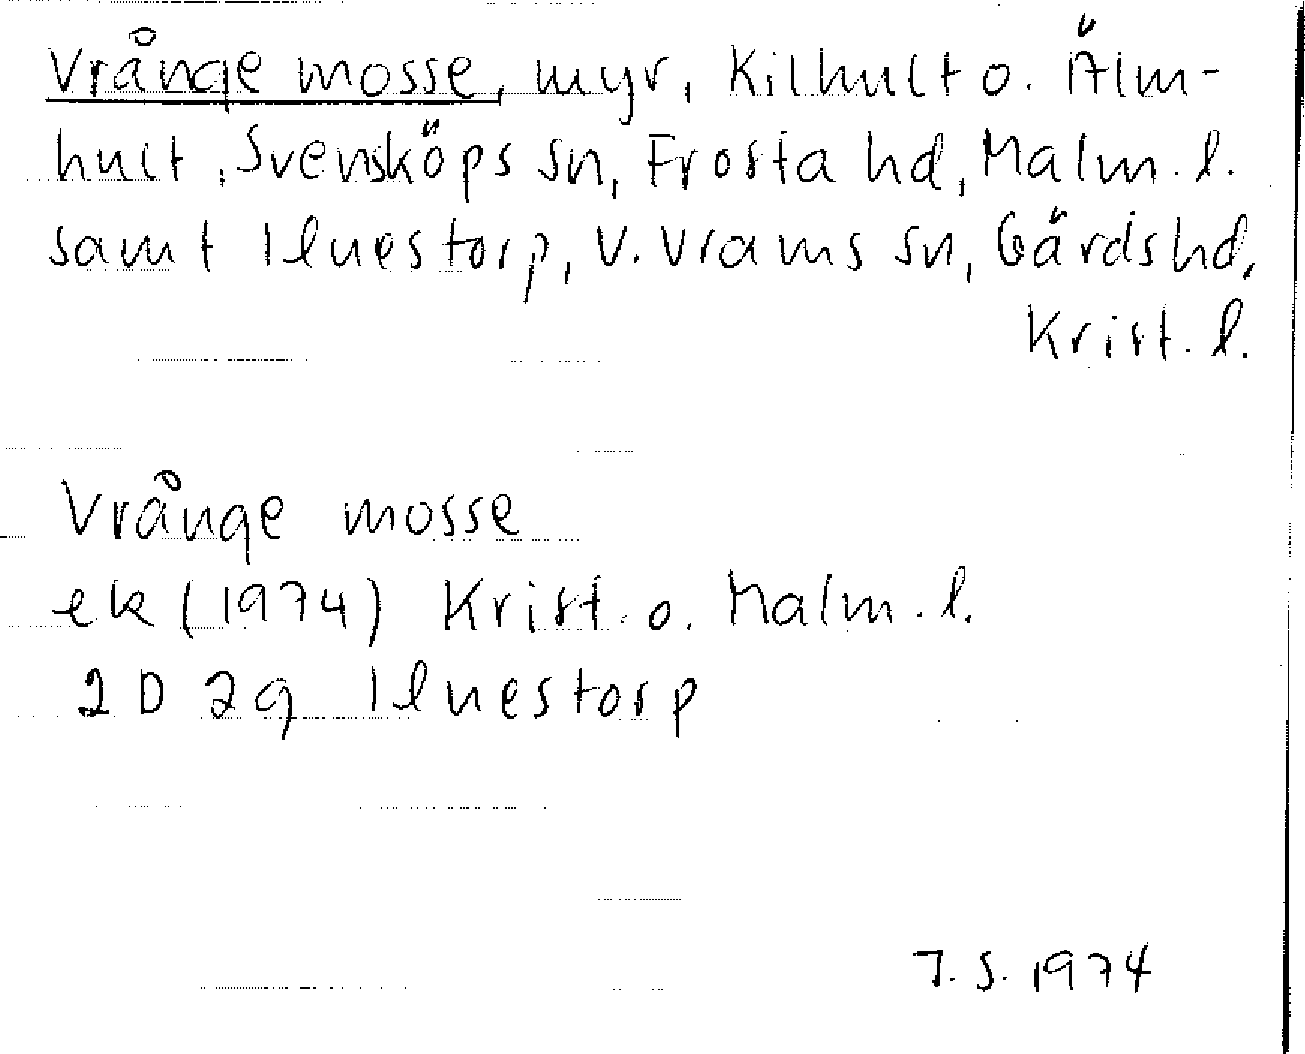 Vrånge mosse, myr, Kilhult o. Älm-
hult, Svensköps sn, Frosta hd, Malm. l.
samt Ilnestorp, V. Vrams sn, Gärds hd,
Krist. l.
Vrånge mosse
ek (1974) Krist. o. Malm. l.
2D 2g Ilnestorp
T. S. 1974